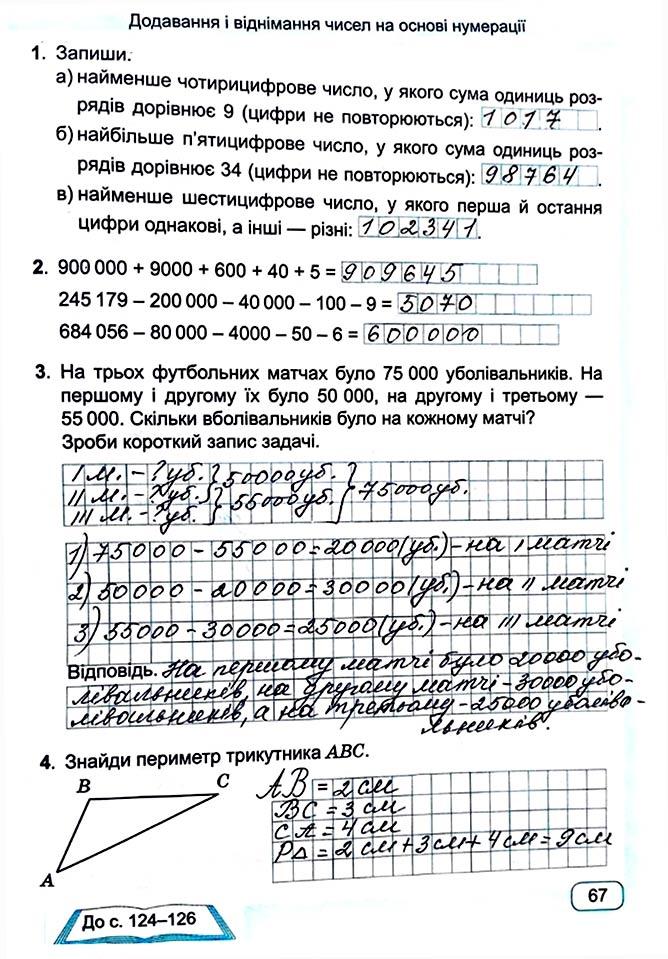 Додавання і віднімання чисел на основі нумерації
1. Запиши.
а) найменше чотирицифрове число, у якого сума одиниць роз-
рядів дорівнює 9 (цифри не повторюються): 1017.
б) найбільше п'ятицифрове число, у якого сума одиниць роз-
рядів дорівнює 34 (цифри не повторюються): 98764.
в) найменше шестицифрове число, у якого перша й остання
цифри однакові, а інші — різні: 102341.
2. 900 000 + 9000 + 600 + 40 + 5 = 909645
245 179 – 200 000 – 40 000 – 100 – 9 = 5070
684 056 – 80 000 – 4000 – 50 – 6 = 600000
3. На трьох футбольних матчах було 75 000 уболівальників. На
першому і другому їх було 50 000, на другому і третьому —
55 000. Скільки вболівальників було на кожному матчі?
Зроби короткий запис задачі.
I м. – ? уб. } 50000 уб. }
II м. – ? уб. } 55000 уб. } 75000 уб.
III м. – ? уб. }
1) 75000 – 55000 = 20000 (уб.) – на I матчі
2) 50000 – 20000 = 30000 (уб.) – на II матчі
3) 55000 – 30000 = 25000 (уб.) – на III матчі
Відповідь. На першому матчі було 20000 убо-
лівальників, на другому матчі – 30000 убо-
лівальників, а на третьому – 25000 уболіва-
льників.
4. Знайди периметр трикутника ABC.
B C
A
AB = 2 см
BC = 3 см
CA = 4 см
P△ = 2 см + 3 см + 4 см = 9 см
67
До с. 124–126